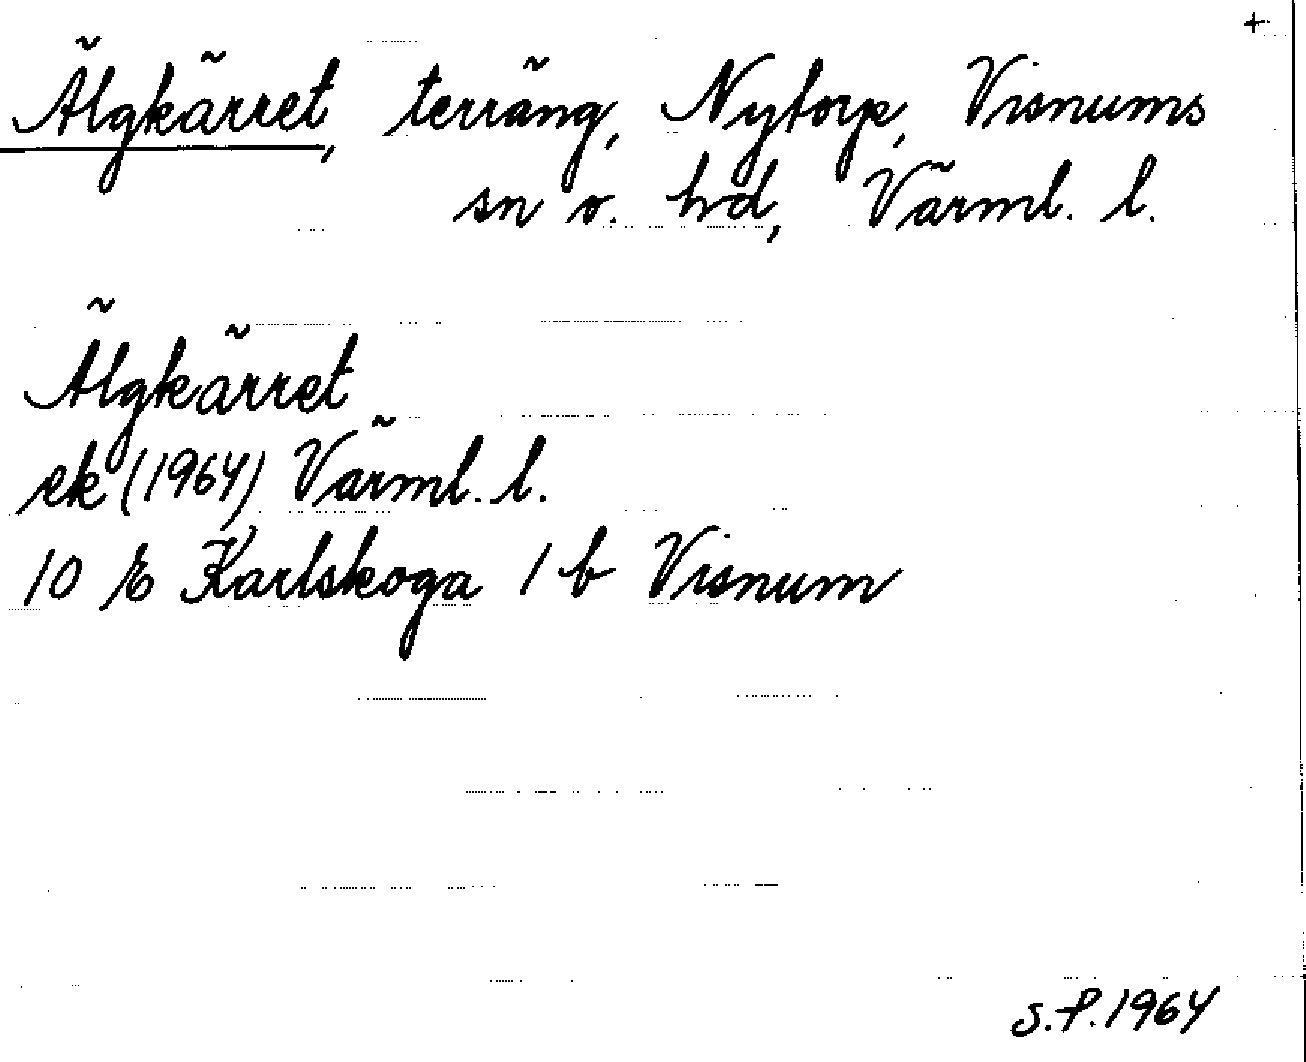 +
Älgkärret, terräng, Nytorp, Visnums
sn o. hd, Värml. l.
Älgkärret
ek (1964) Värml. l.
10 E Karlskoga 1 b Visnum
S.P. 1964